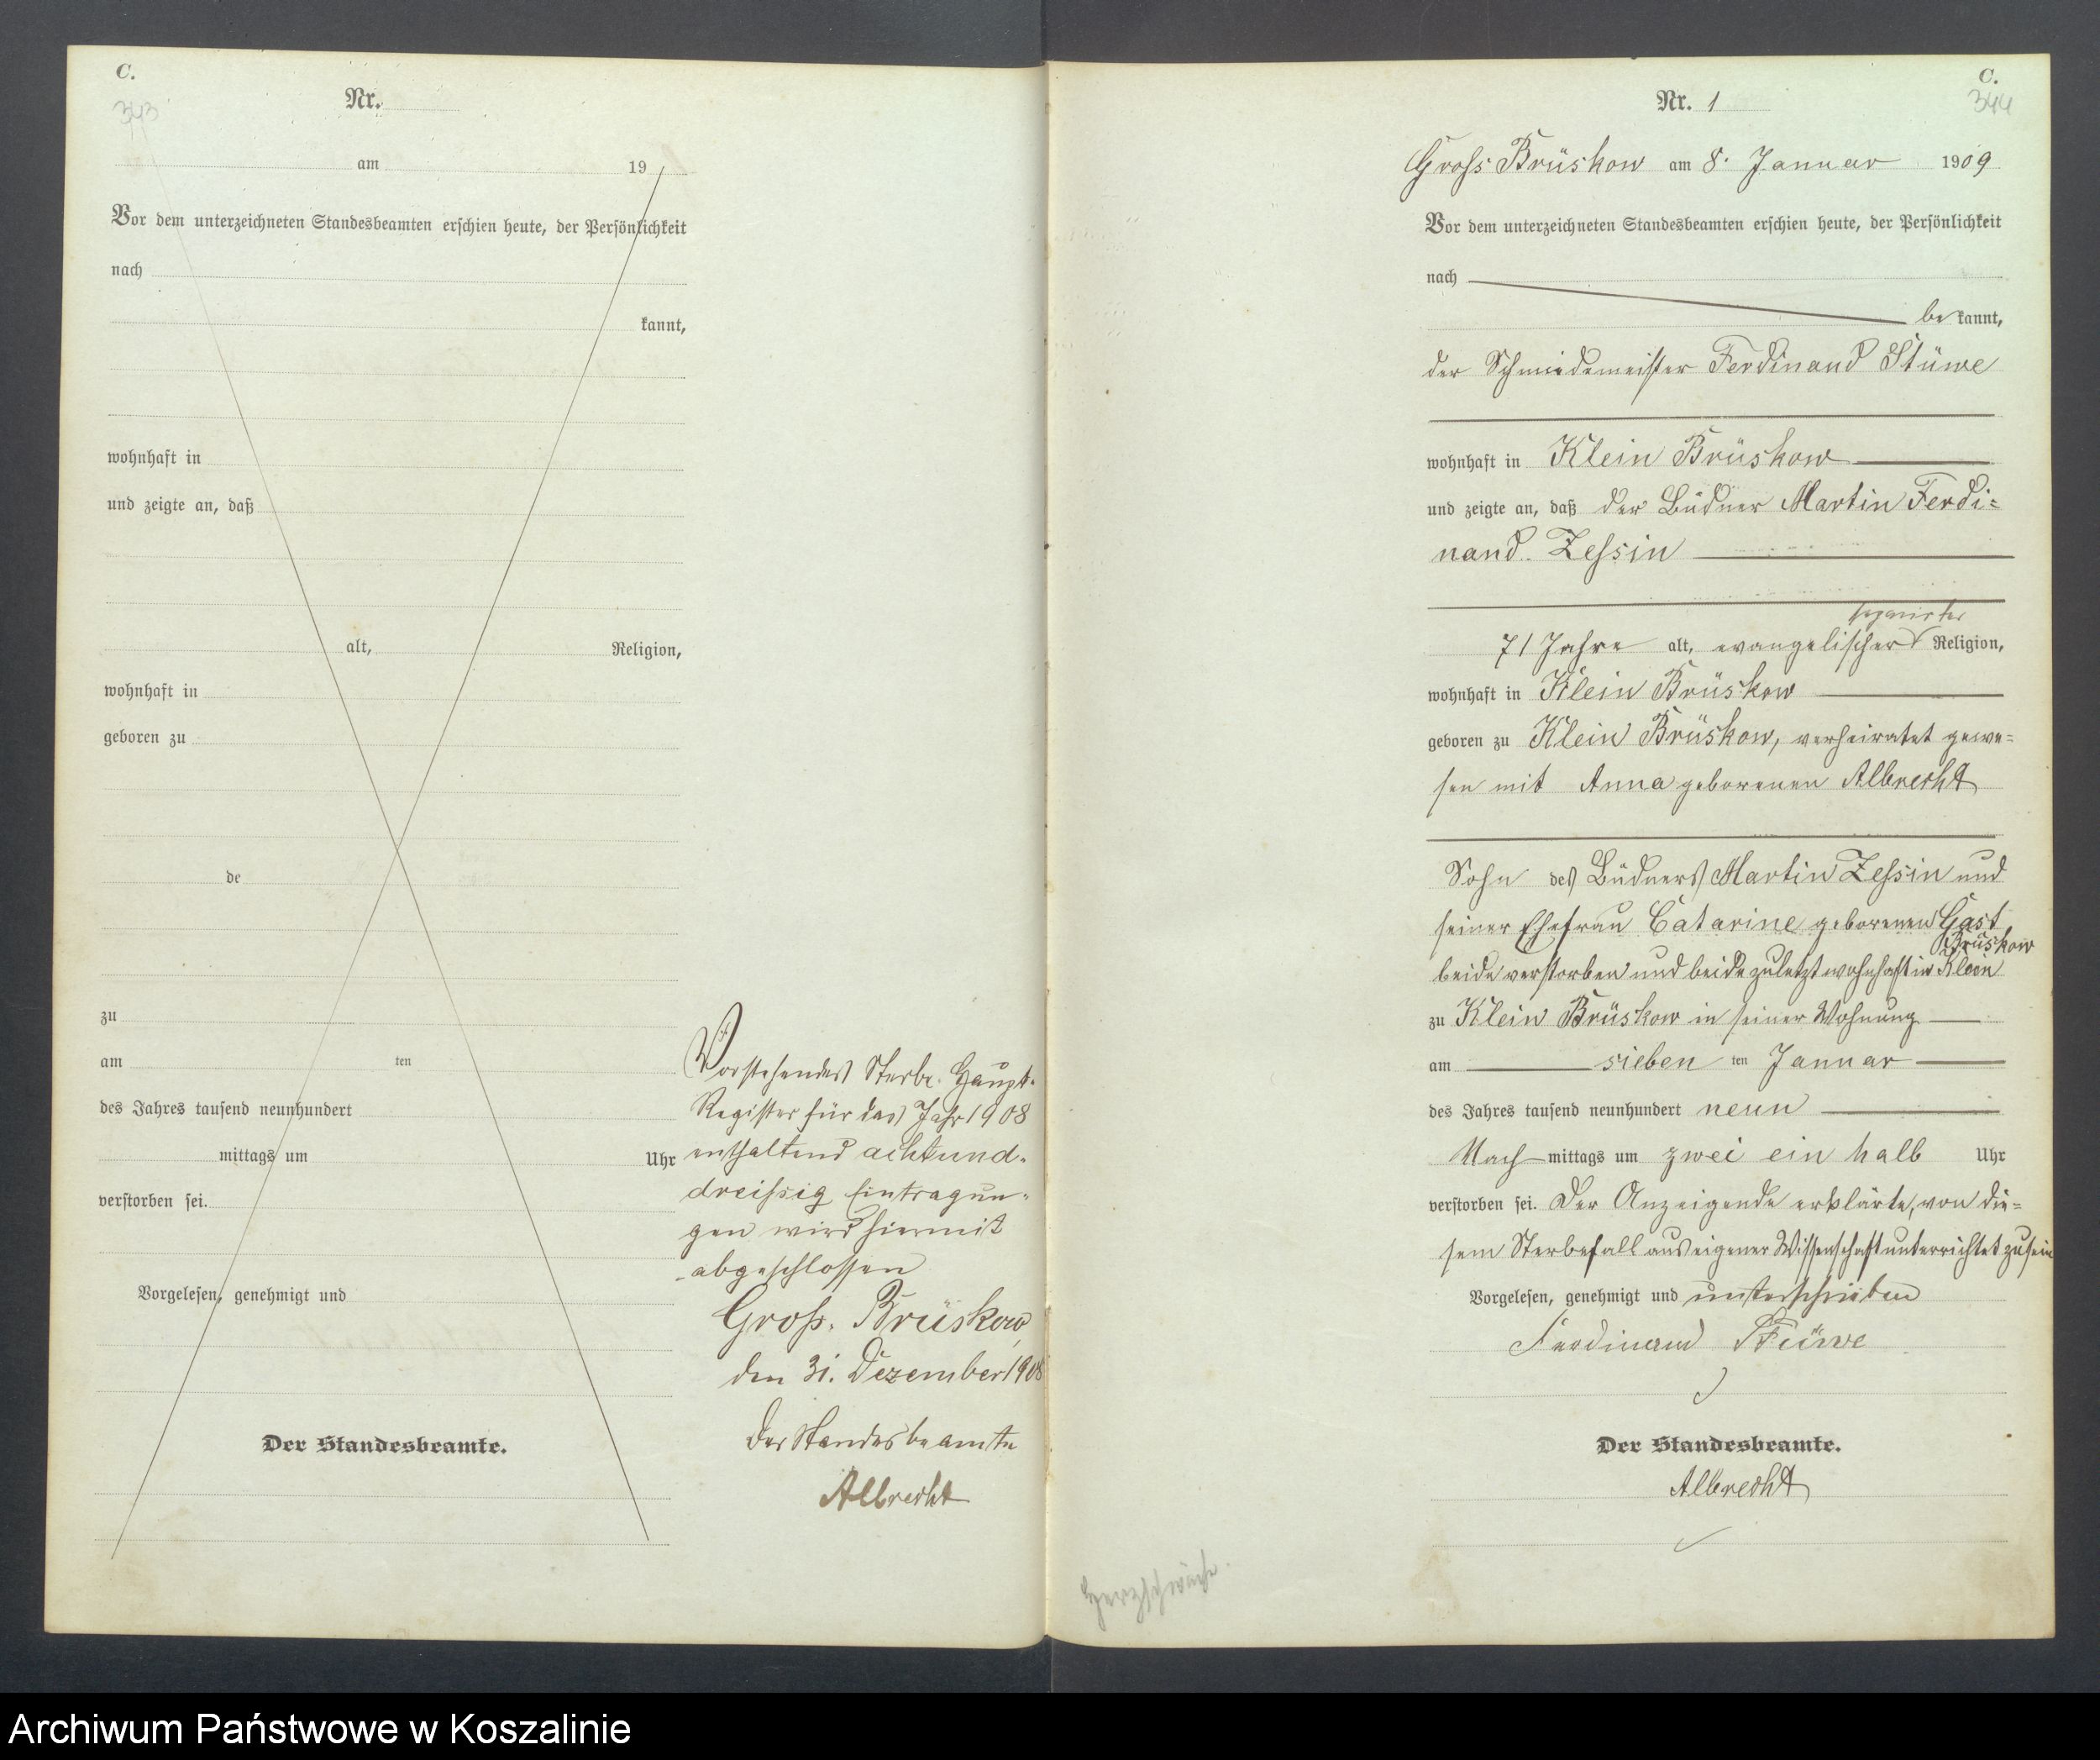 C.
343
Nr.
am 19
Vor dem unterzeichneten Standesbeamten erschien heute, der Persönlichkeit
nach
kannt,
wohnhaft in
und zeigte an, daß
alt, Religion,
wohnhaft in
geboren zu
de
zu
am ten
des Jahres tausend neunhundert
mittags um Uhr
verstorben sei.
Vorgelesen, genehmigt und
Der Standesbeamte.
Vorstehendes Sterbe-Haupt-
Register für das Jahr 1908
enthaltend achtund-
dreißig Eintragun-
gen wird hiermit
abgeschlossen
Groß-Brüskow,
den 31. Dezember 1908
Der Standesbeamte
Albrecht
C.
344
Nr. 1
Gross Brüskow am 8. Januar 1909
Vor dem unterzeichneten Standesbeamten erschien heute, der Persönlichkeit
nach
be kannt,
der Schmiedemeister Ferdinand Stüwe
wohnhaft in Klein Brüskow
und zeigte an, daß der Büdner Martin Ferdi=
nand Zessin
separirter
71 Jahre alt, evangelischer Religion,
wohnhaft in Klein Brüskow
geboren zu Klein Brüskow, verheiratet gewe=
sen mit Anna geborenen Albrecht
Sohn des Büdners Martin Zessin und
seiner Ehefrau Catarine geborenen Gast
Brüskow
beide verstorben und beide zuletzt wohnhaft in Klein
zu Klein Brüskow in seiner Wohnung
am sieben ten Januar
des Jahres tausend neunhundert neun
Nach mittags um zwei ein halb Uhr
verstorben sei. Der Anzeigende erklärte, von die=
sem Sterbefall aus eigener Wissenschaft unterrichtet zu sein
Vorgelesen, genehmigt und unterschrieben
Ferdinand Stüwe
Der Standesbeamte.
Albrecht
Herzschwäche.
Archiwum Państwowe w Koszalinie